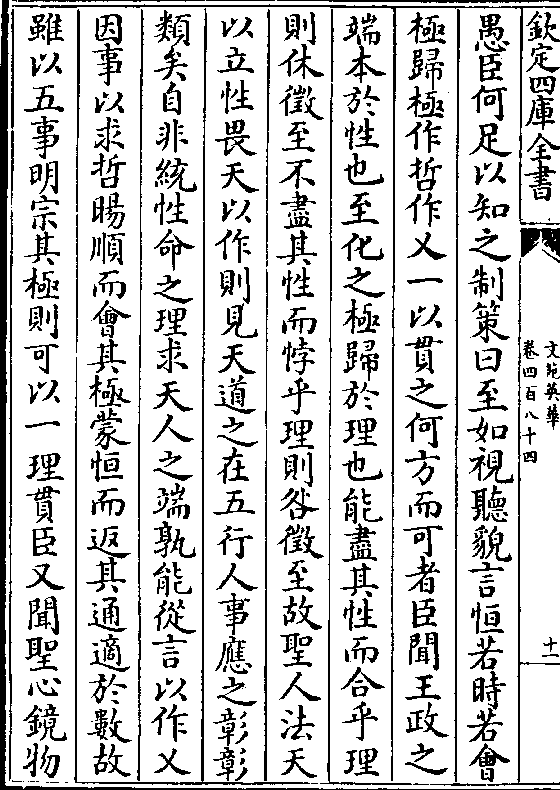 欽定四庫全書
文苑英華
卷四百八十四
十一
愚臣何足以知之制策曰至如視聽貌言恒若時若會
極歸極作哲作乂一以貫之何方而可者臣聞王政之
端本於性也至化之極歸於理也能盡其性而合乎理
則休徵至不盡其性而悖乎理則咎徵至故聖人法天
以立性畏天以作則見天道之在五行人事應之彰彰
類矣自非統性命之理求天人之端孰能從言以作乂
因事以求哲暘順而會其極蒙恒而返其通適於數故
雖以五事明宗其極則可以一理貫臣又聞聖心鏡物